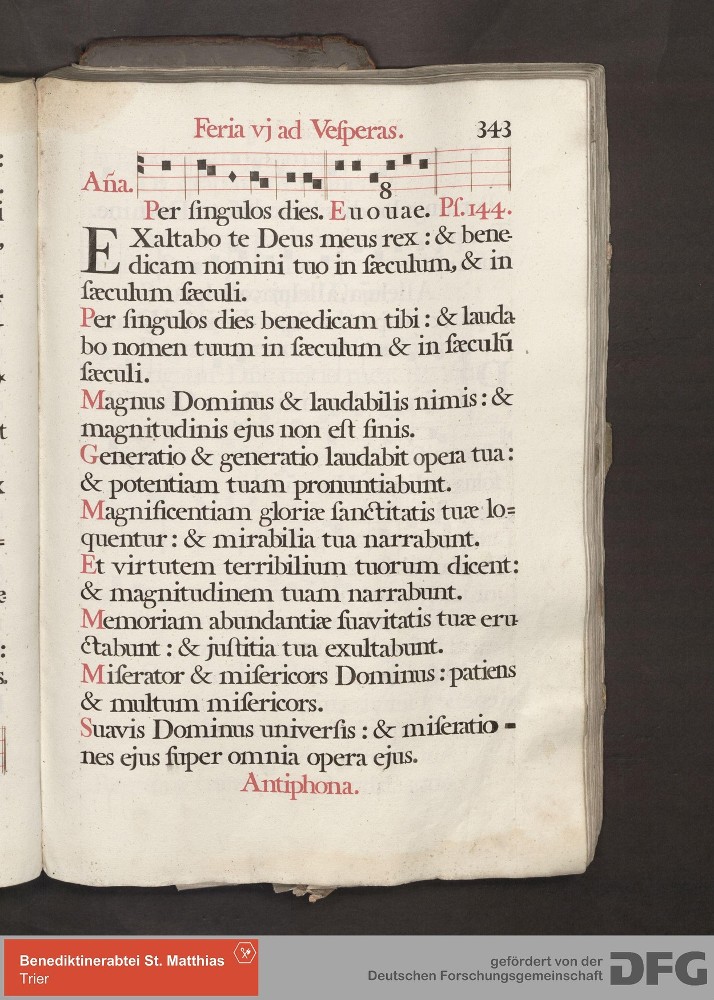 Feria vj ad Veſperas. 343
8
Aña.
Per ſingulos dies. E u o u ae. Pſ. 144.
EXaltabo te Deus meus rex : & bene-
dicam nomini tuo in ſæculum, & in
ſæculum ſæculi.
Per ſingulos dies benedicam tibi : & lauda-
bo nomen tuum in ſæculum & in ſæculũ
ſæculi.
Magnus Dominus & laudabilis nimis : &
magnitudinis ejus non eſt finis.
Generatio & generatio laudabit opera tua :
& potentiam tuam pronuntiabunt.
Magnificentiam gloriæ ſanctitatis tuæ lo=
quentur : & mirabilia tua narrabunt.
Et virtutem terribilium tuorum dicent :
& magnitudinem tuam narrabunt.
Memoriam abundantiæ ſuavitatis tuæ eru-
ctabunt : & juſtitia tua exultabunt.
Miſerator & miſericors Dominus : patiens
& multum miſericors.
Suavis Dominus univerſis : & miſeratio-
nes ejus ſuper omnia opera ejus.
Antiphona.
Benediktinerabtei St. Matthias
Trier
gefördert von der
Deutschen Forschungsgemeinschaft
DFG